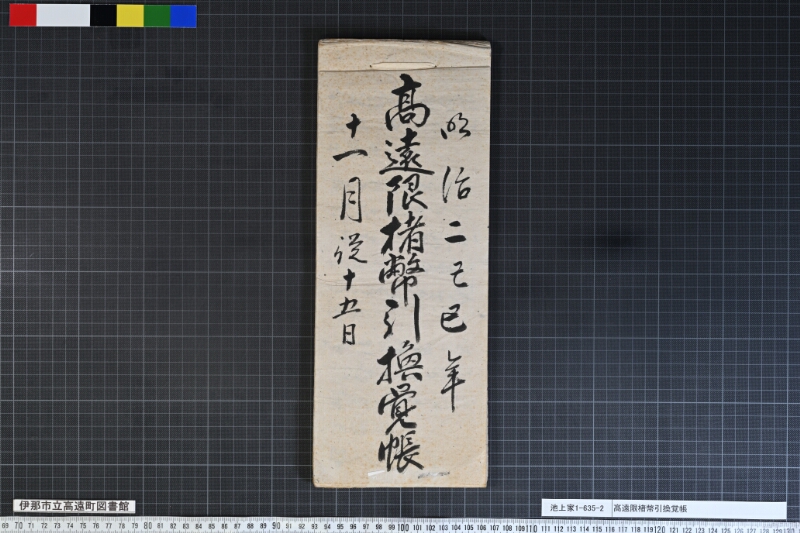 明治二己巳年
高遠限楮幣引換覚帳
十一月従十五日
伊那市立高遠町図書館
池上家1-635-2 高遠限楮幣引換覚帳